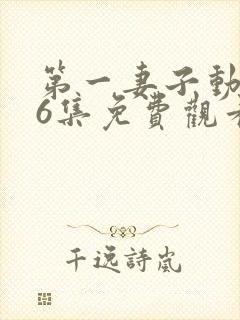 第一妻子動
6集免費觀看
千逸詩嵐